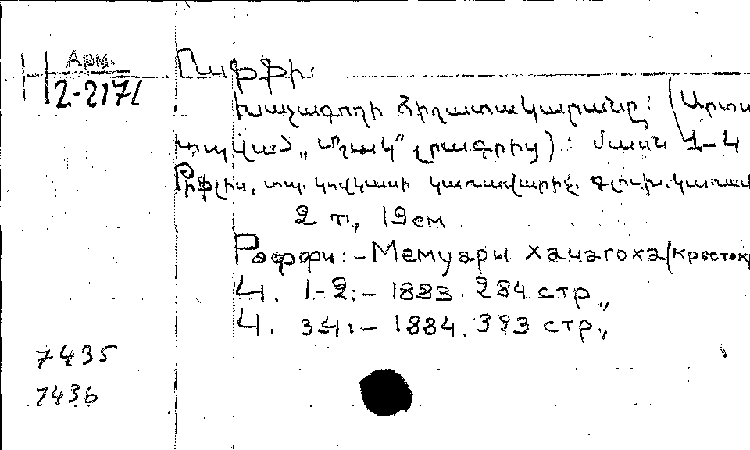 Арм.
2-2171
Րաֆֆի:
Խաչագողի Յիշատակարանը: (Արտա
տպված „Մշակ“ լրագրից): Մասն 1-4
Թիֆլիս, տպ. Կովկասի Կառավարիչ. Գլուխ. կառավ
2 т., 19 см
Раффи:- Мемуары Хачагоха (Крестокр
Ч. 1-2:- 1883. 284 стр„
Ч. 3-4:- 1884. 393 стр„
7435
7436